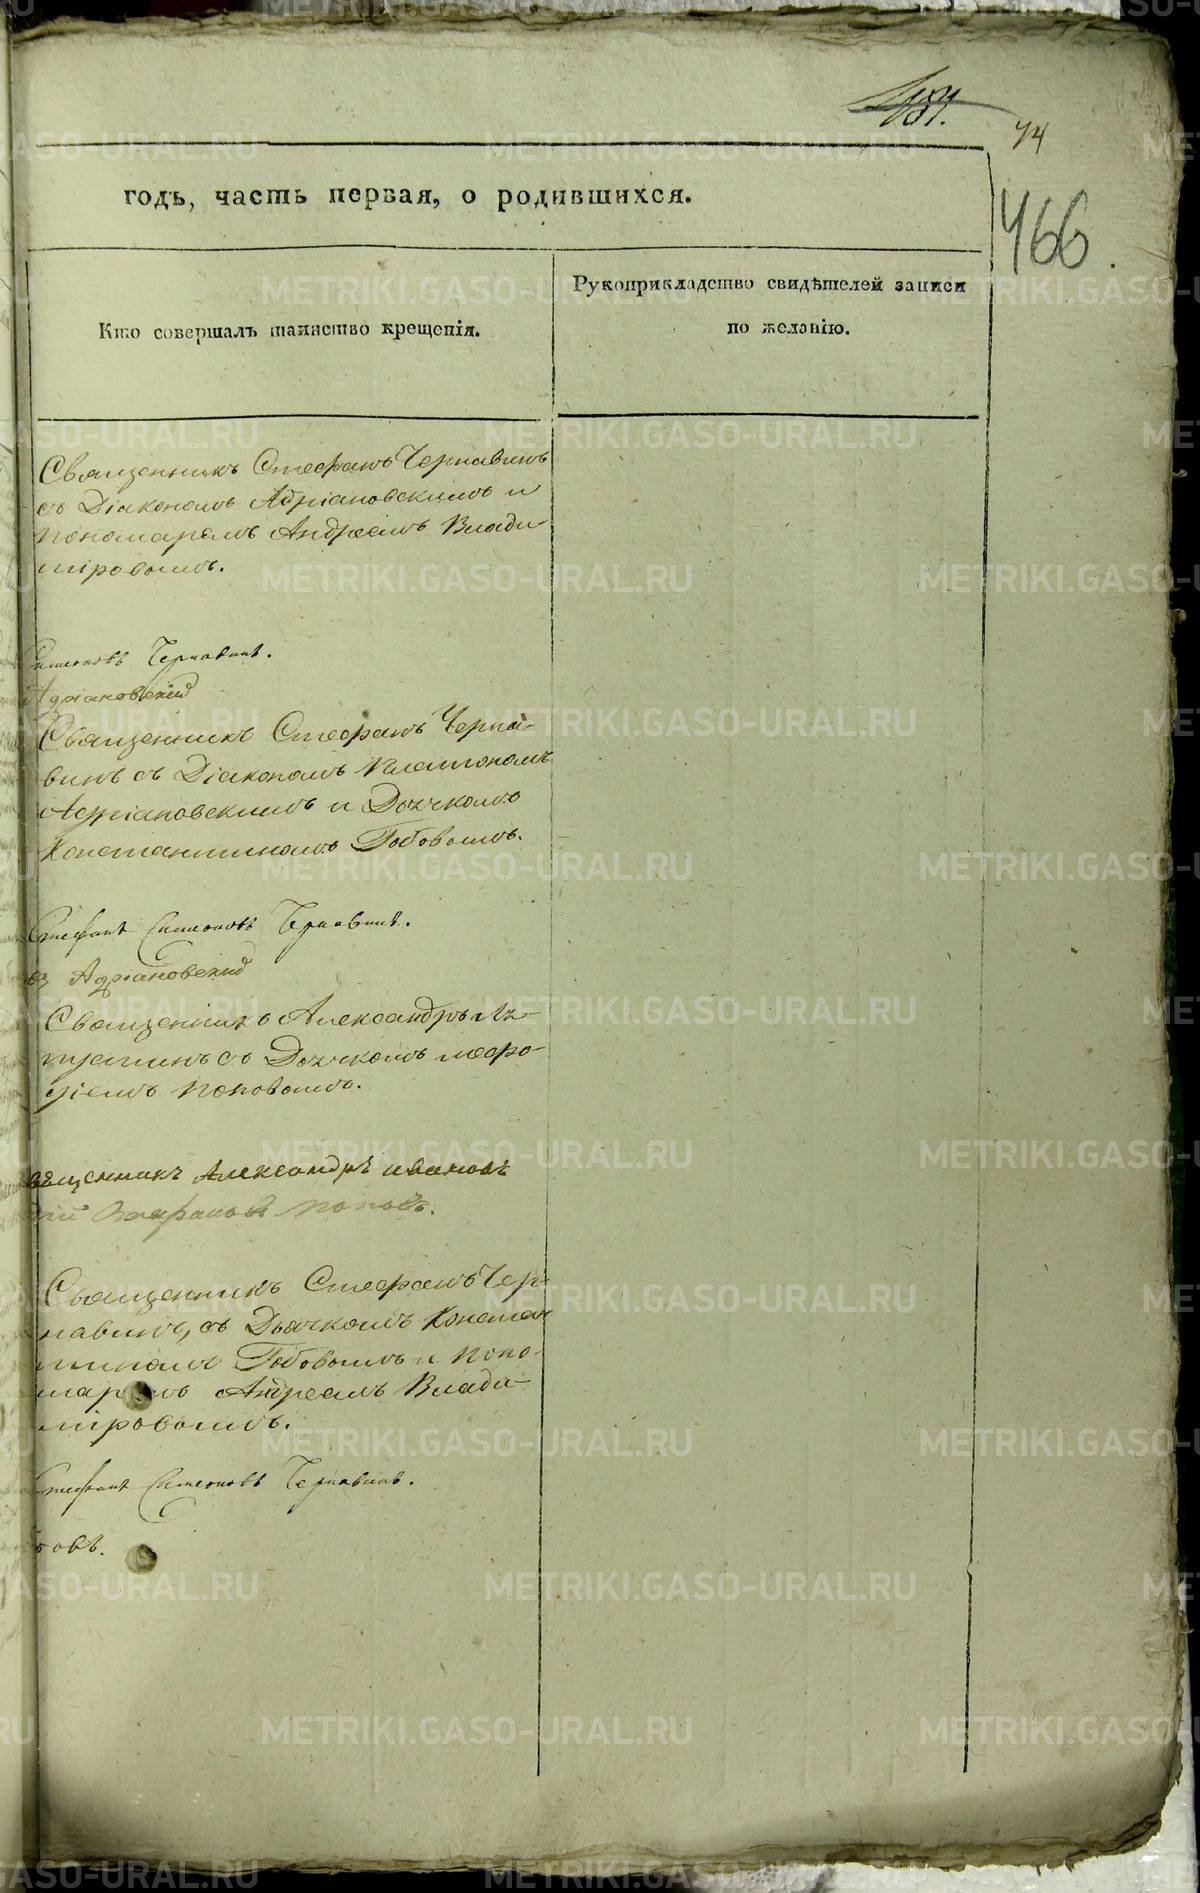 74
466
годъ, часть первая, о родившихся.
Кто совершалъ таинство крещенія.
Рукоприкладство свидѣтелей записи
по желанію.
Священникъ Стефанъ Чернавинъ
съ Діакономъ Адріановскимъ и
пономаремъ Андреемъ Влади
міровымъ.
Симеоновъ Чернавинъ.
Адріановскій
Священникъ Стефанъ Черна-
винъ съ Діакономъ Платономъ
Адріановскимъ и Дьячкомъ
Константиномъ Бабовымъ.
Стефанъ Симеоновъ Чернавинъ.
въ Адріановскій
Священникъ Александръ
съ Дьячкомъ
Поповымъ.
вященникъ Александръ Ивановъ
Стефановъ Поповъ.
Священникъ Стефанъ Чер-
навинъ, съ Дьячкомъ Констан
тиномъ Бабовымъ и поно-
маремъ Андреемъ Влади-
міровымъ.
Стефанъ Симеоновъ Чернавинъ.
овъ.
METRIKI.GASO-URAL.RU